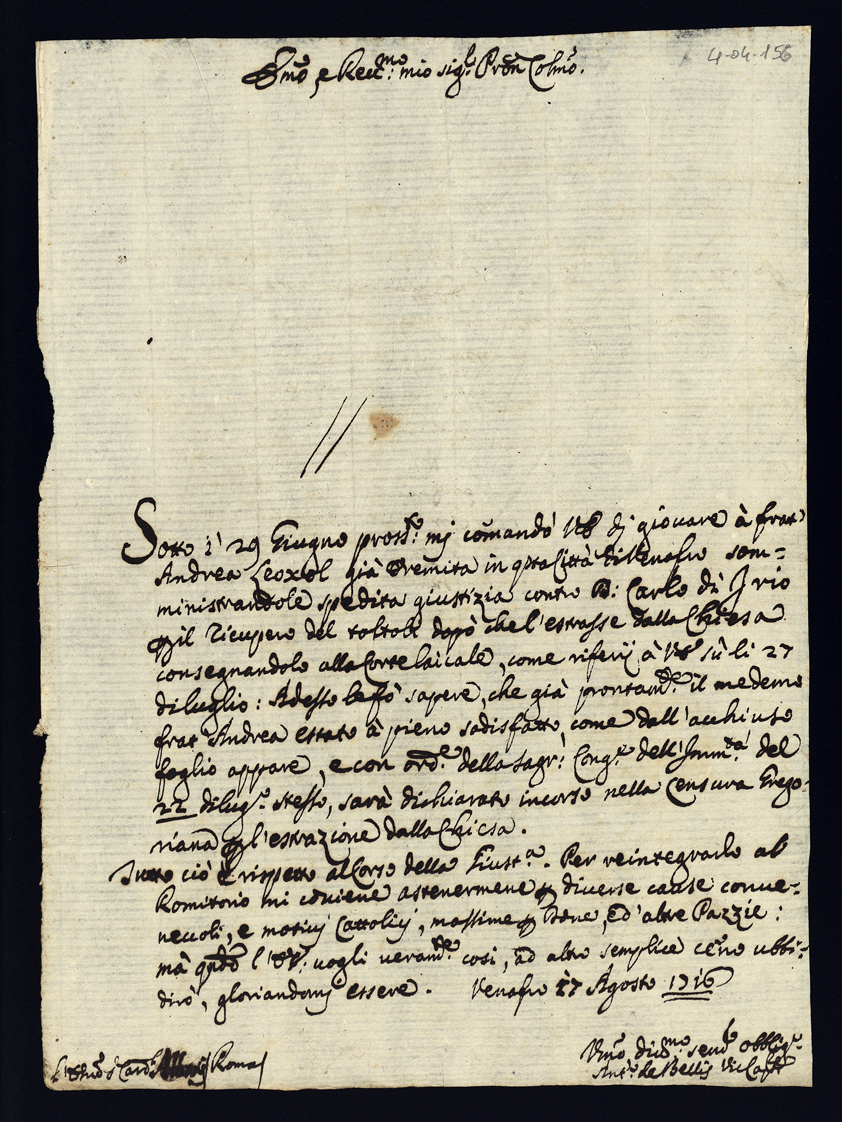 4-04-156
Emo e Reumo: mio sigr Pron Colmo.
Sotto i' 29 Giugno prossº: mi comandò VE di giovare à frat'
Andrea già Eremita in qsta Città di Venafro som=
ministrandole spedita giustizia contro D: Carlo di Irio
il ricupero del toltoli dopò che l'estrasse dalla Chiesa
consegnandolo alla Corte laicale, come riferij à VE sù li 27
di luglio: Adesso le fò sapere, che già prontamte il medemo
frat' Andrea è stato à pieno sodisfatto, come dall'acchiuso
foglio appare, e con orde della sagr: Conge dell'Immtà del
22 di lugº stesso, sarà dichiarato incorso nella Censura Grego=
riana l'estrazione dalla Chiesa.
Tutto ciò è rispetto al Corso della Giusta. Per reintegrarlo al
Romitorio mi cōviene astenermene diverse cause conve=
nevoli, e motivij Cattolicij, massime Done, ed altre Pazzie:
mà qndo l'VE: vogli veramte così, ad altro semplice ceño ubbi=
dirò, gloriandomi essere. Venafro 17 Agosto 1716
Card Roma
Vmo, divmo, servr obbligº
Antº de Bellis Vic Capre